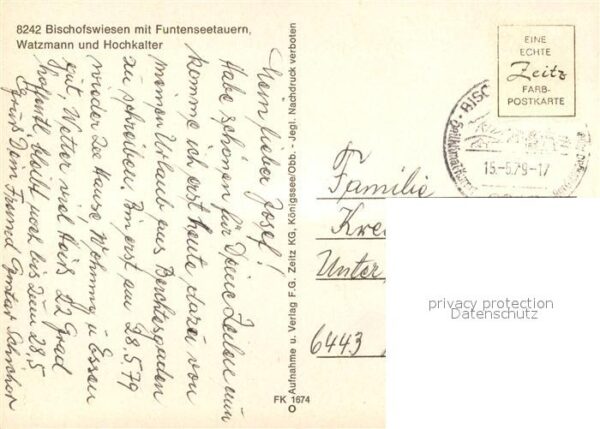 8242 Bischofswiesen mit Funtenseetauern,
Watzmann und Hochkalter
Mein lieber Josef!
Habe schönen für Deine Zeilen nun
komme ich erst heute dazu von
meinen Urlaub aus Berchtesgaden
zu schreiben. Bin erst am 28.5.79
wieder zu Hause, Wohnung u Essen
gut, Wetter viel Heiß 22 Grad
hoffentl. bleibt noch bis zum 28.5
Gruß Dein Freund Gustav
Aufnahme u. Verlag F.G. Zeitz KG, Königssee/Obb. - Jegl. Nachdruck verboten
FK 1674
EINE
ECHTE
Zeitz
FARB-
POSTKARTE
15.-5.79-17
Familie
Unter
6443
privacy protection
Datenschutz